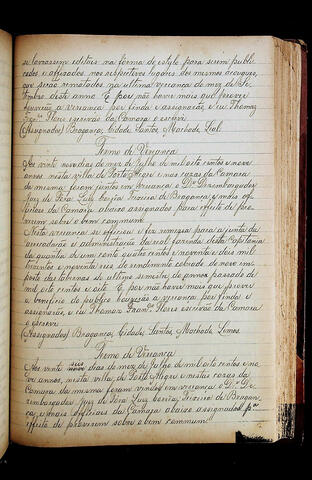 se lavrassem editais na forma do estylo para serem publi-
cados e affixados nos respectivos lugares dos mesmos açougues,
que serão rematados na ultima vereança do mez de Se-
tembro deste anno. E por não haver mais que prover
houverão a vereança por finda e assignarão, e eu Thomaz
escrivão da Camara o escrevi
(Assignados) Bragança, Cidade, Santos, Machado, Leal.
Termo de Vereança
Aos vinte nove dias do mez de Julho de mil oito centos e nove
annos nesta villa de Porto Alegre e nas cazas da Camara
da mesma forem juntos em vereança o Dr. Dezembargador
Juiz de Fora Luiz Corrêa Teixeira de Bragança, e mais of-
ficiaes da Camara abaixo assignados para effeito de pro-
verem sobre o bem commum.
Nesta vereança se officiou e fez remessa para a junta da
arrecadação e administração da real fazenda desta Capitania
da quantia de um conto quatro centos e noventa e dois mil
trezentos e noventa reis do rendimento cobrado de novo im-
posto das tabernas do ultimo semestre do anno passado de
mil oito centos e oito. E por não haver mais que prover
a beneficio do publico houverão a vereança por finda e
assignarão, e eu Thomaz escrivão da Camara
o escrevi
(Assignados) Bragança, Cidade, Santos, Machado, Lemos.
Termo de Vereança
Aos vinte nove dias do mez de Julho de mil oito centos e no-
ve annos, nesta villa de Porto Alegre e nestas cazas da
Camara da mesma forem vindos em vereança o Dr. De-
zembargador Juiz de Fora Luiz Corrêa Teixeira de Bragan-
ça, e mais officiaes da Camara abaixo assignados pa
effeito de proverem sobre o bem commum.